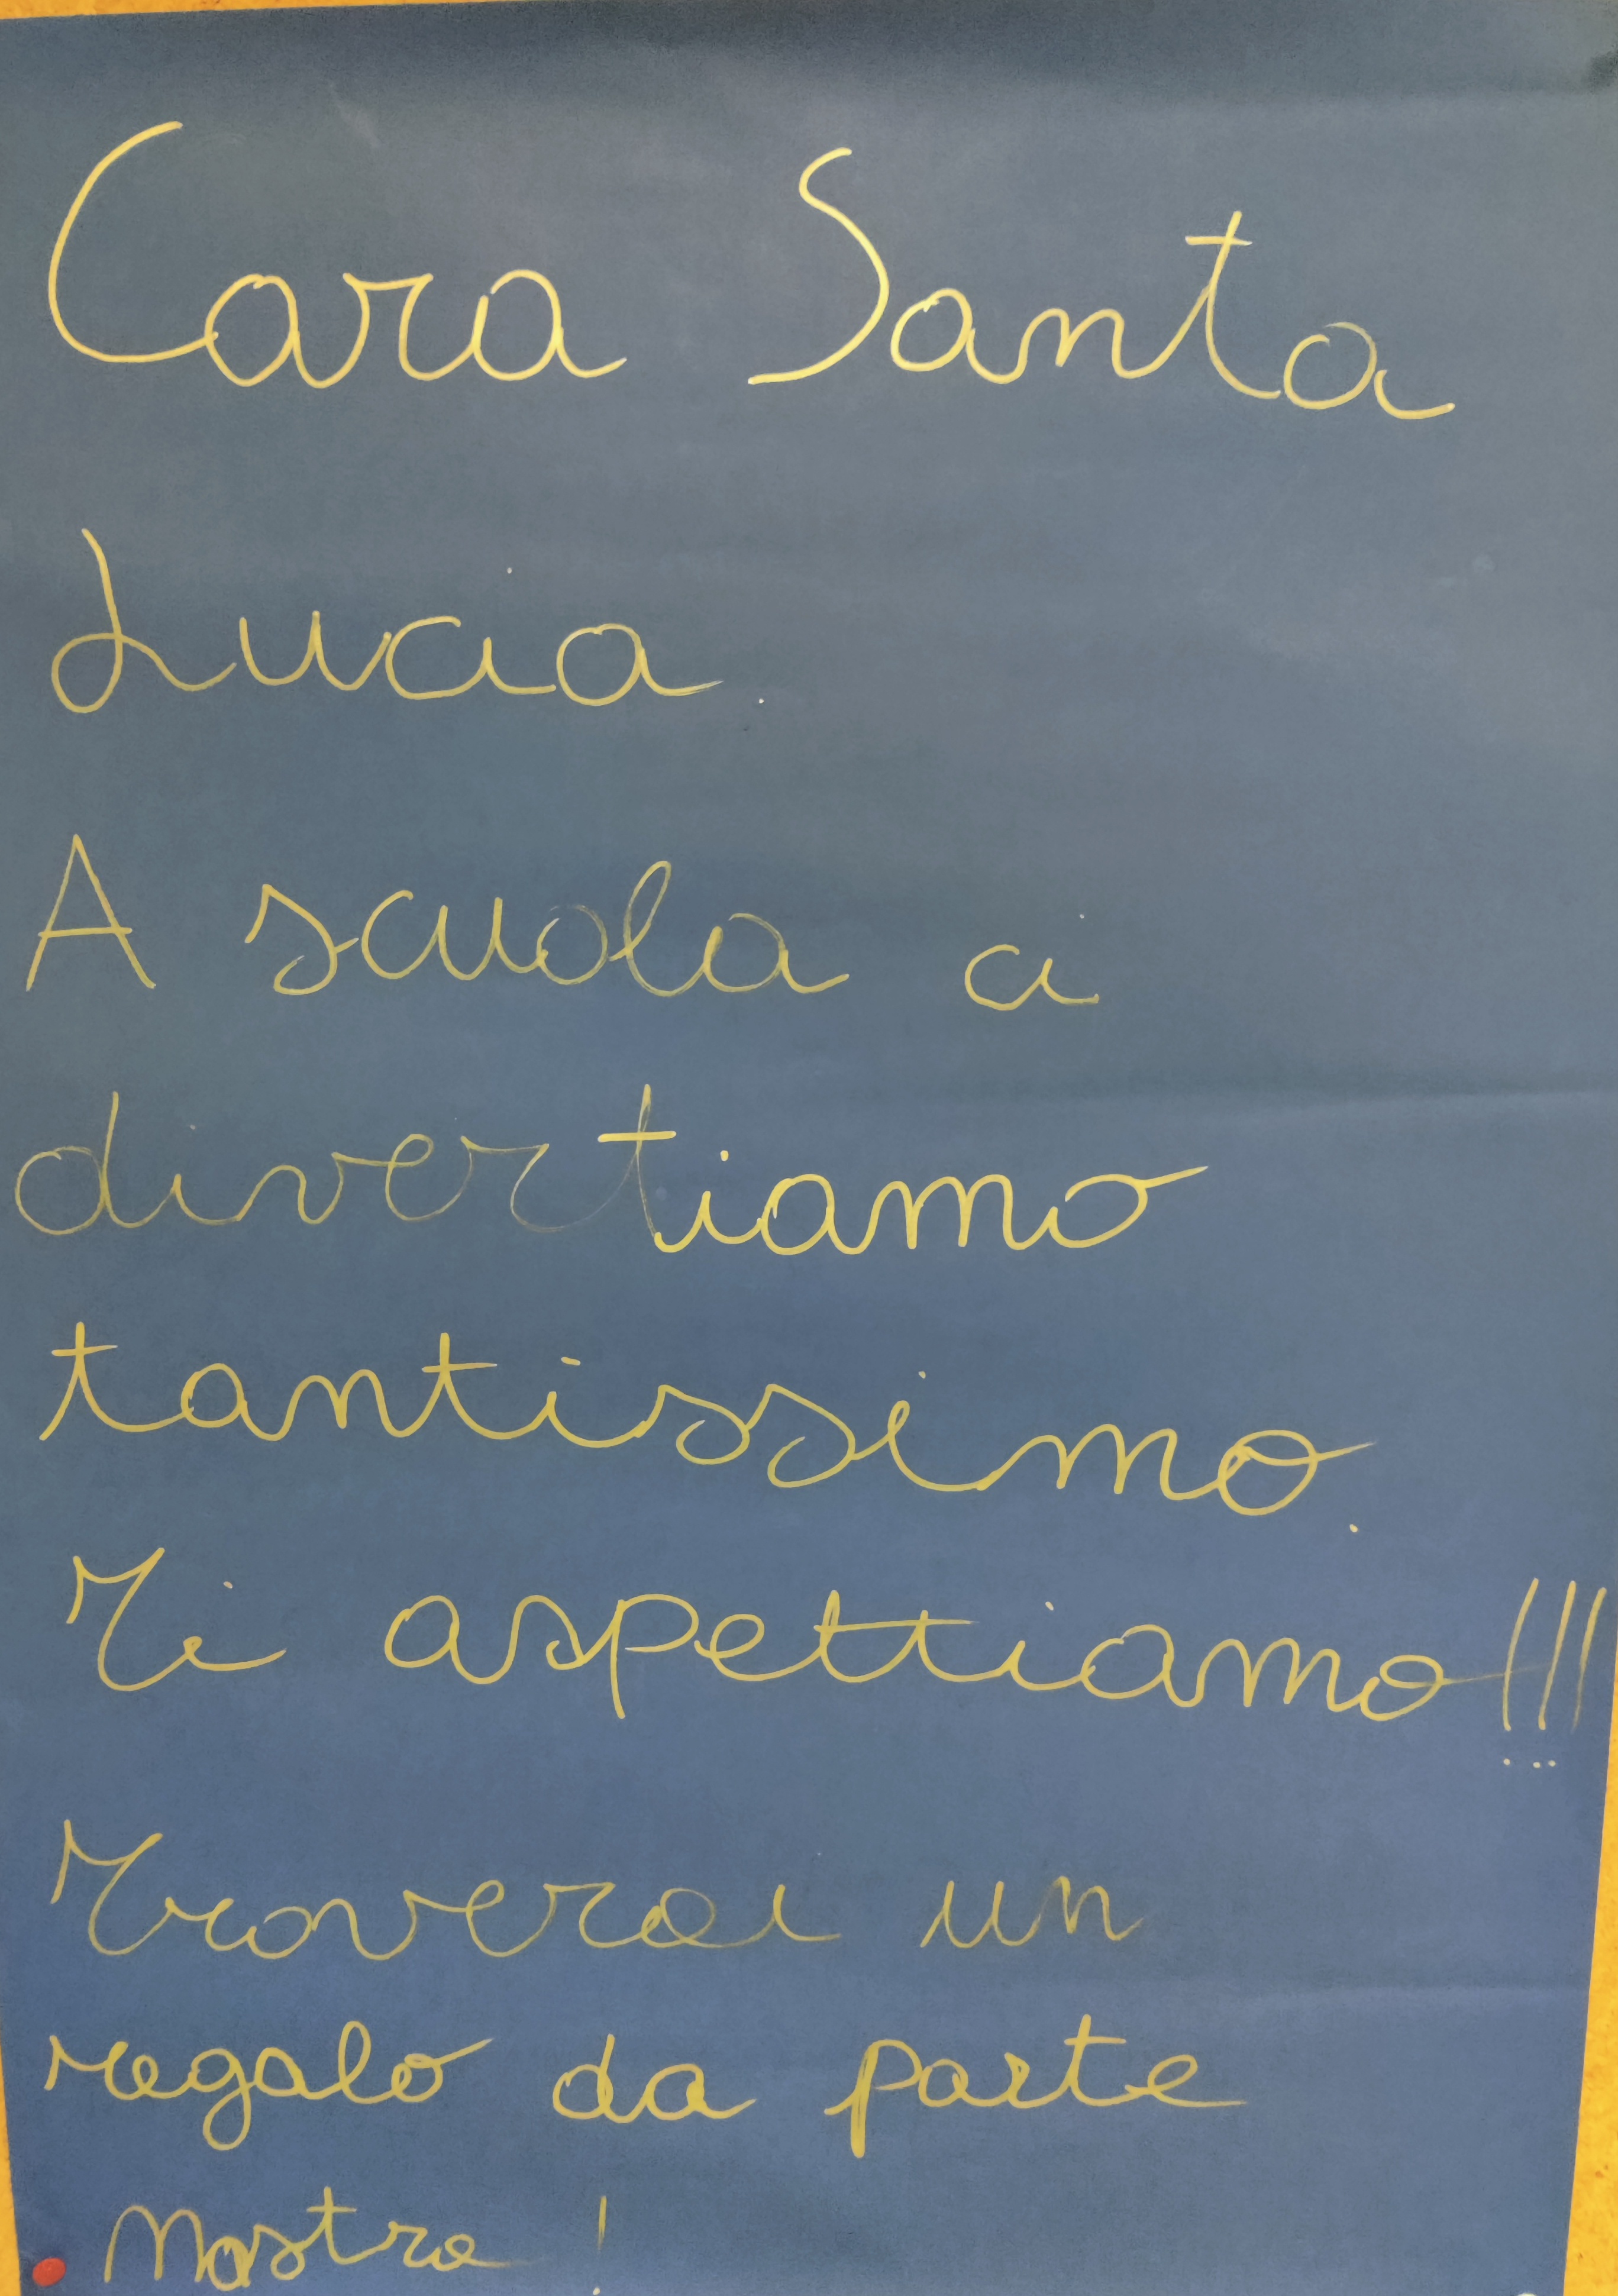 Cara Santa
Lucia.
A scuola ci
divertiamo
tantissimo.
Ti aspettiamo!!!
Troverai un
regalo da parte
nostra!